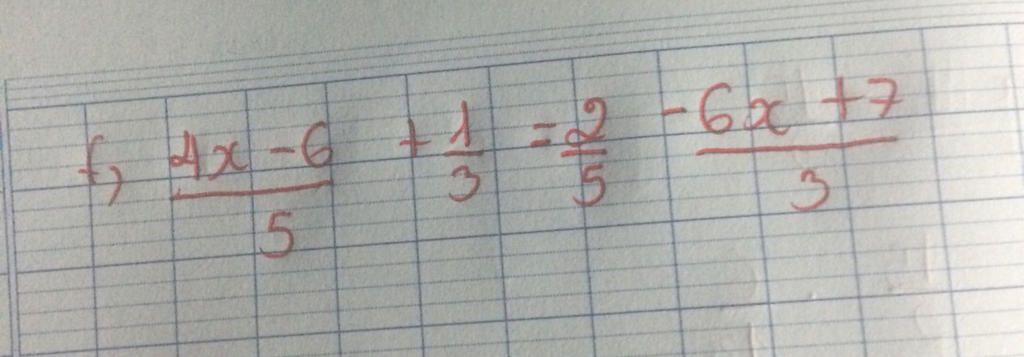 f, \frac{4x - 6}{5} + \frac{1}{3} = \frac{2}{5} - \frac{6x + 7}{3}